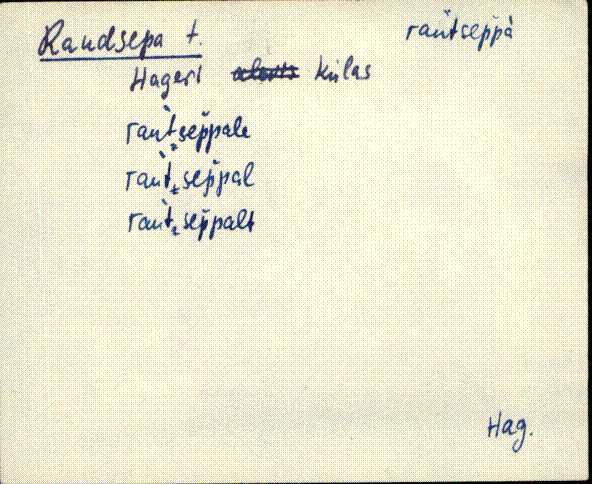 Raudsepa t.
raùtsep̆pà
Hageri külas
raùtsep̆pale
raùtsep̆pal
raùtsep̆palt
Hag.